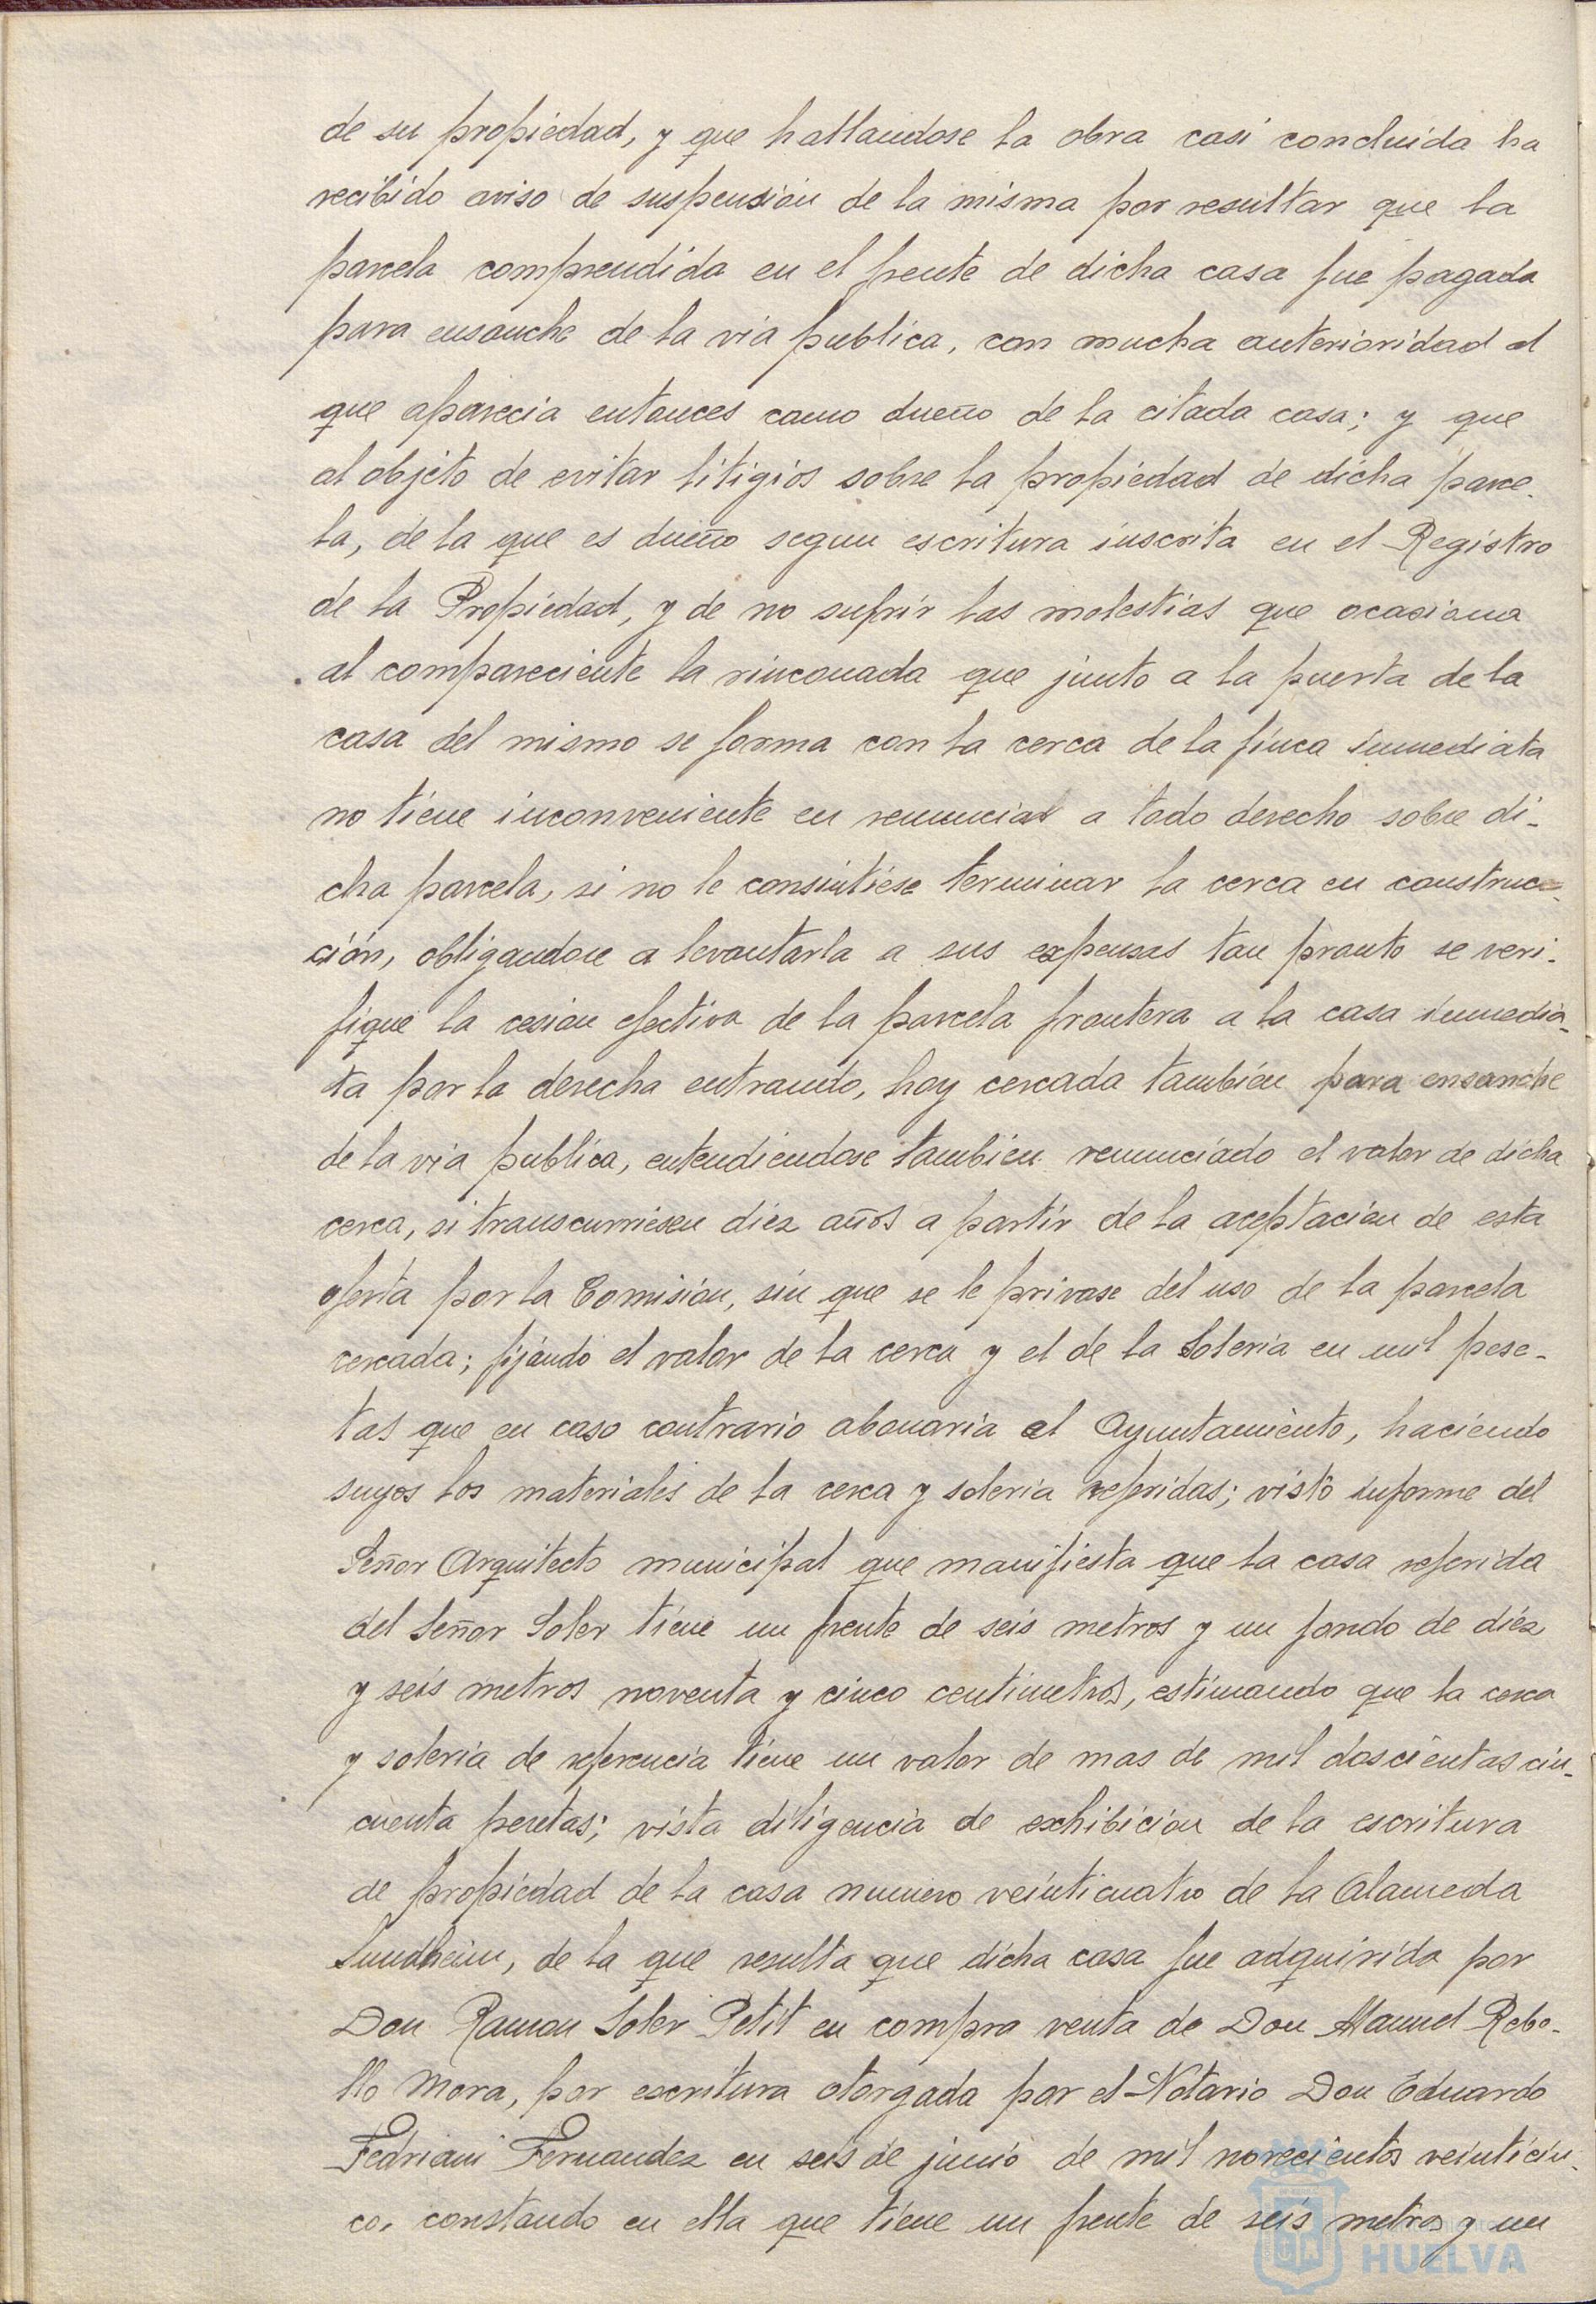 de su propiedad, y que hallandose la obra casi concluida ha
recibido aviso de suspensión de la misma por resultar que la
parcela comprendida en el frente de dicha casa fue pagada
para ensanche de la via publica, con mucha anterioridad al
que aparecia entonces como dueño de la citada casa; y que
al objeto de evitar litigios sobre la propiedad de dicha parce-
la, de la que es dueño segun escritura inscrita en el Registro
de la Propiedad, y de no sufrir las molestias que ocasiona
al compareciente la rinconada que junto a la puerta de la
casa del mismo se forma con la cerca de la finca inmediata
no tiene inconveniente en renunciar a todo derecho sobre di-
cha parcela, si no le consintiése terminar la cerca en construc-
ción, obligandose a levantarla a sus expensas tan pronto se veri-
fique la cesion efectiva de la parcela frontera a la casa inmedia-
ta por la derecha entrando, hoy cercada tambien para ensanche
de la via publica, entendiendose tambien renunciado el valor de dicha
cerca, si transcurriesen diez años a partir de la aceptacion de esta
oferta por la Comisión, sin que se le privase del uso de la parcela
cercada; fijando el valor de la cerca y el de la Soleria en mil pese-
tas que en caso contrario abonaria al Ayuntamiento, haciendo
suyos los materiales de la cerca y soleria referidas; visto informe del
Señor Arquitecto municipal que manifiesta que la casa referida
del Señor Soler tiene un frente de seis metros y un fondo de diez
y seis metros noventa y cinco centimetros, estimando que la cerca
y soleria de referencia tiene un valor de mas de mil doscientas cin-
cuenta pesetas; vista diligencia de exhibicion de la escritura
de propiedad de la casa numero veinticuatro de la Alameda
Sundheim, de la que resulta que dicha casa fue adquirida por
Don Ramon Soler Petit en compra venta de Don Manuel Rebo-
llo Mora, por escritura otorgada por el Notario Don Eduardo
Fedriani Fernandez en seis de junio de mil novecientos veinticin-
co, constando en ella que tiene un frente de seis metros y un
HUELVA